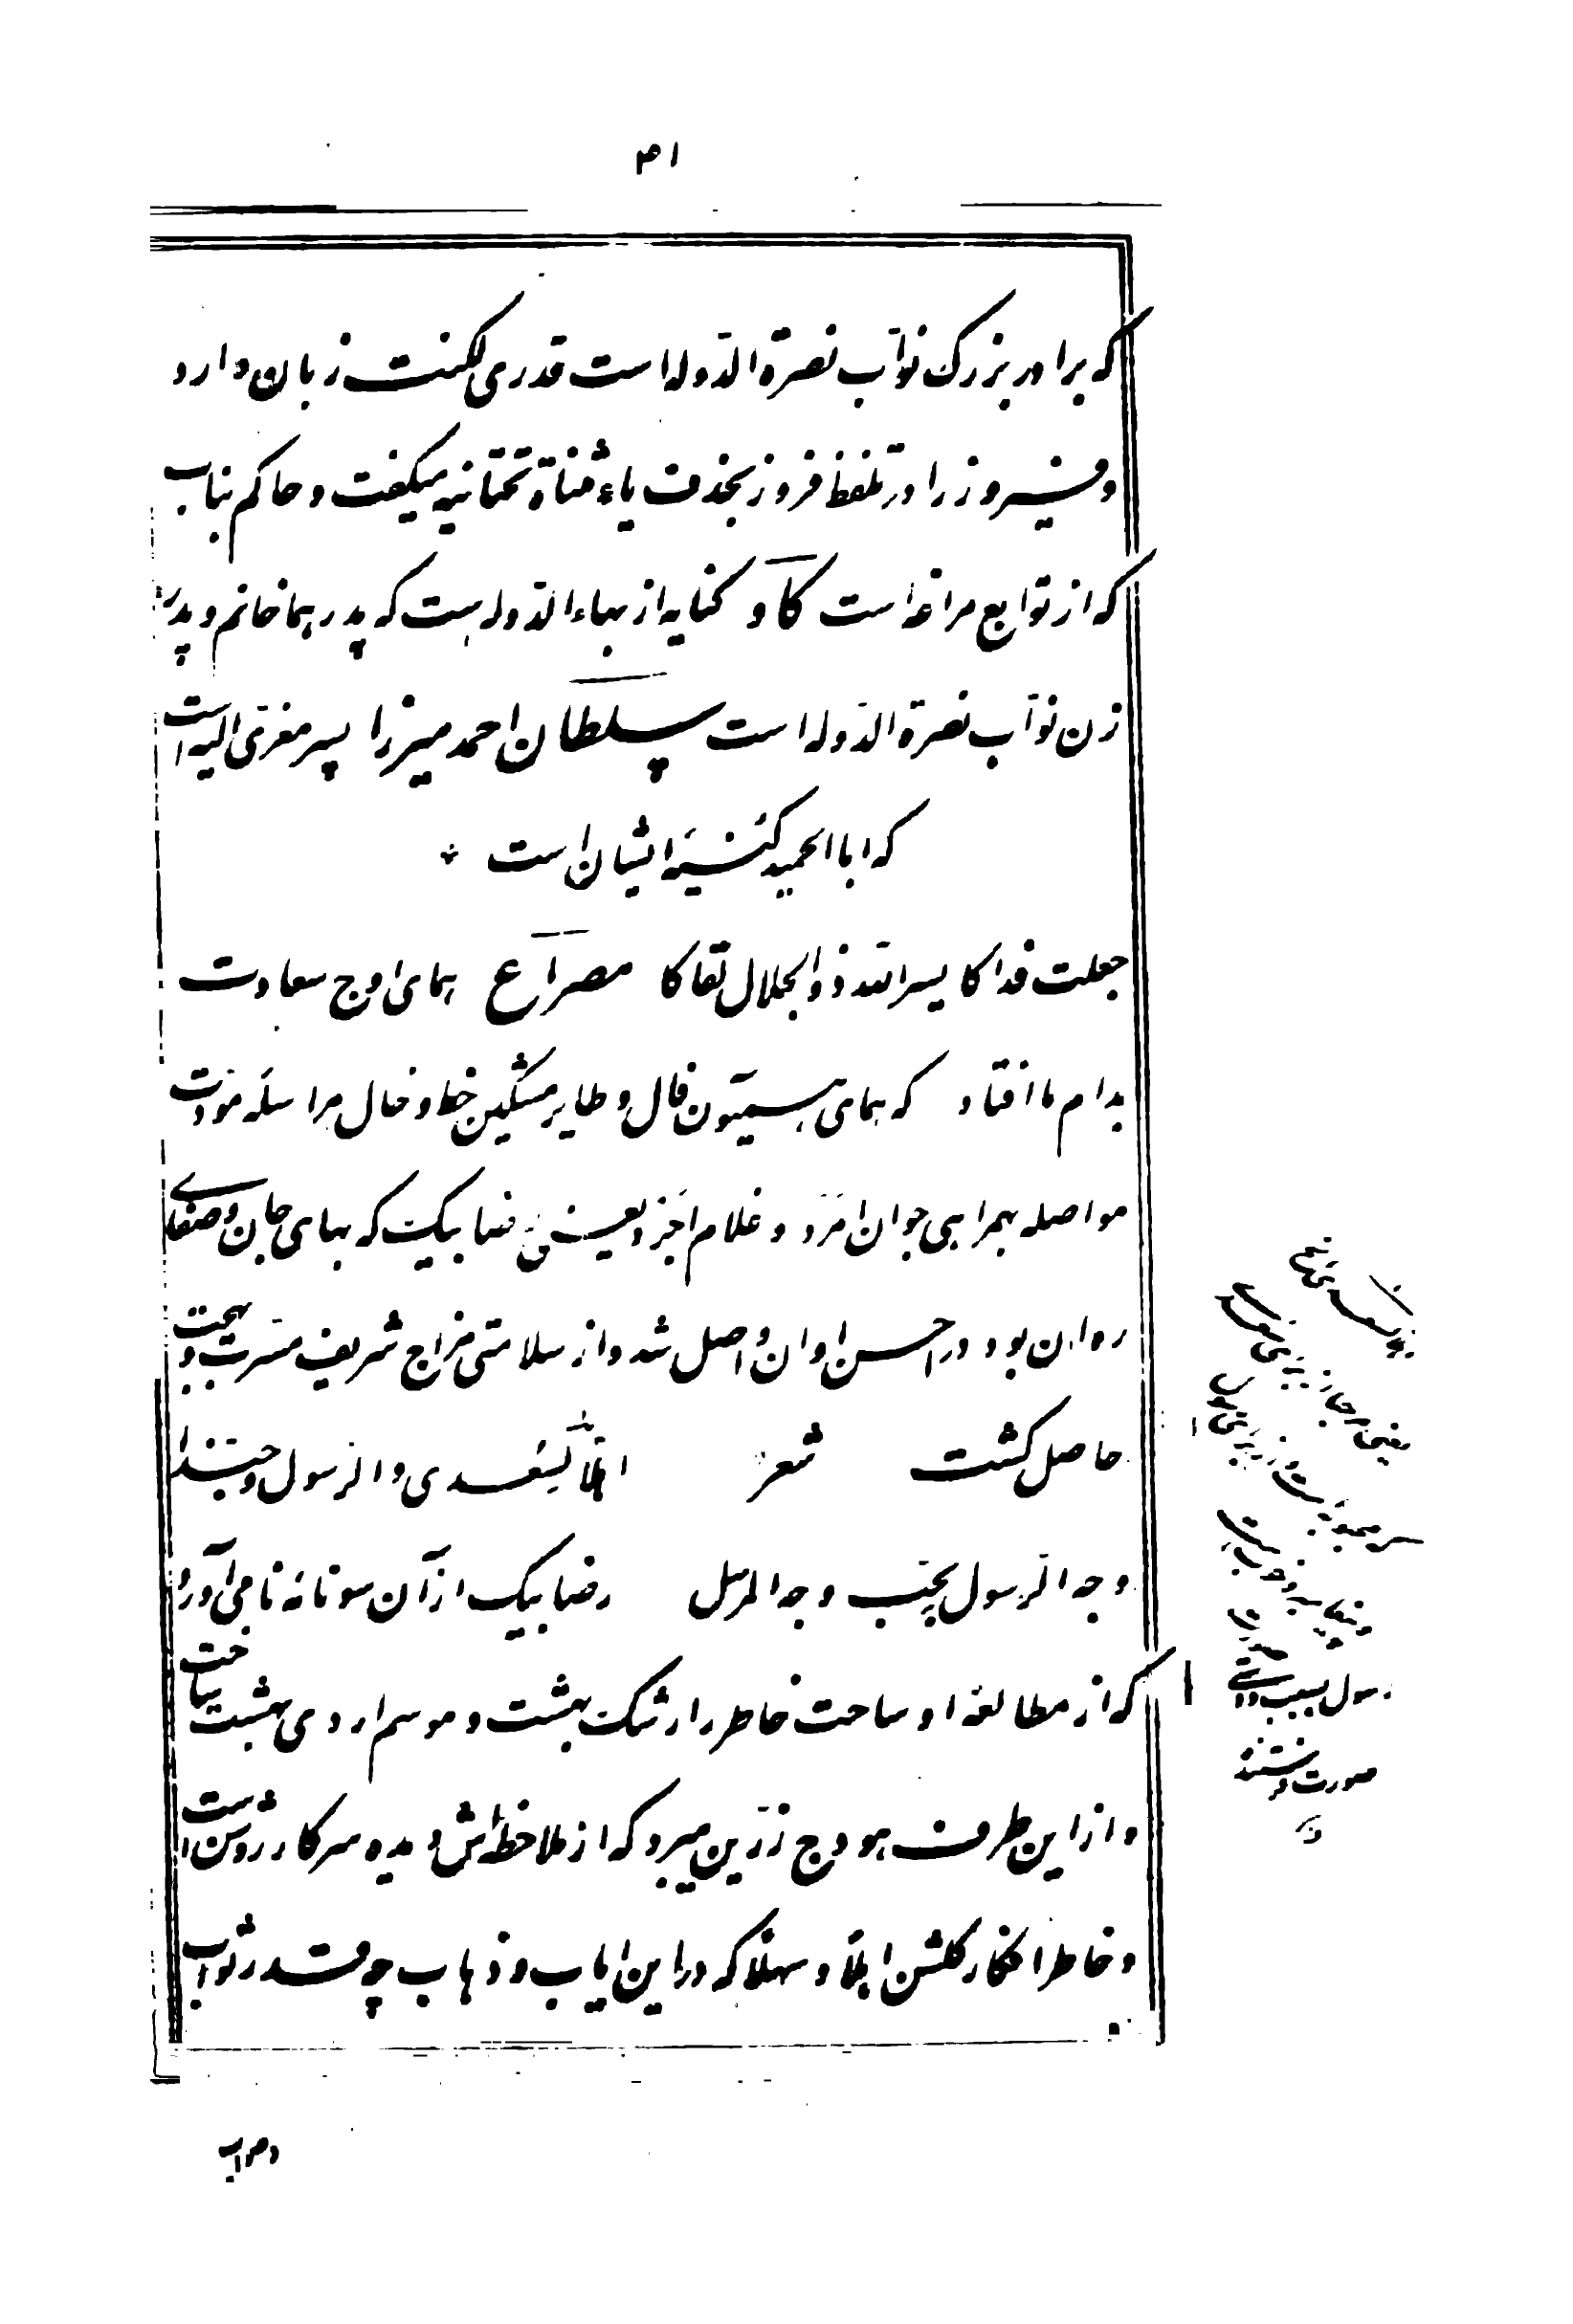 ۳۱
که برادر بزرگ نوّاب نصرة الدّوله است قدری لکنت زبان دارد
و فیروز را در تلفظ فروز بحذف یاء مثناة تحتانیه میگفت و حاکم بناب
که از توابع مراغه است گاو کنایه از بهاء الدّوله است که پدر هما خانم و پدر
زن نوّاب نصرة الدّوله است سلطان احمد میرزا پسر معزی الیه است
که ابا الحمید کنیه ایشان است *
جعلت فداکا یسر الله ذو الجلال لقاکا مصراع همای اوج سعادت
بدام ما افتاد که همای همیون فال و طایر مشکین خط و خال مراسله مودّت
مواصله بهمراهی جوان امرد و غلام اجرد یعنی رضا بیک که بهای جان و صفای
روان بود در احسن اوان واصل شد و از سلامتی مزاج شریف مسرّت و بهجت
حاصل گشت شعر اهلًا بسعدی و الرسول و حبّذا
وجه الرسول بحبّ وجه المرسل رضا بیک از آن سو نامه نامی آورد
که از مطالعه او ساحت خاطر را رشک بهشت و موسم اردی بهشت ساخت
و از این طرف هودج زرّین میبرد که از ملاحظه‌اش دیده سرکار روشن است
و خاطر افکار گلشن اهلًا و سهلًا که در این ایاب و ذهاب چه قدر ثواب
رسول بسبب
صورت